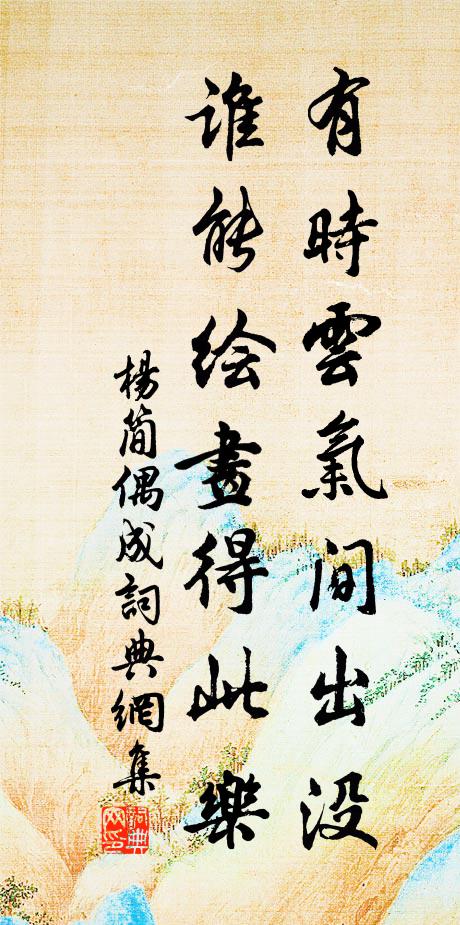 有時雲氣间出没
谁能绘畫得此樂
楊简偶成詞典網集
詞典
网印